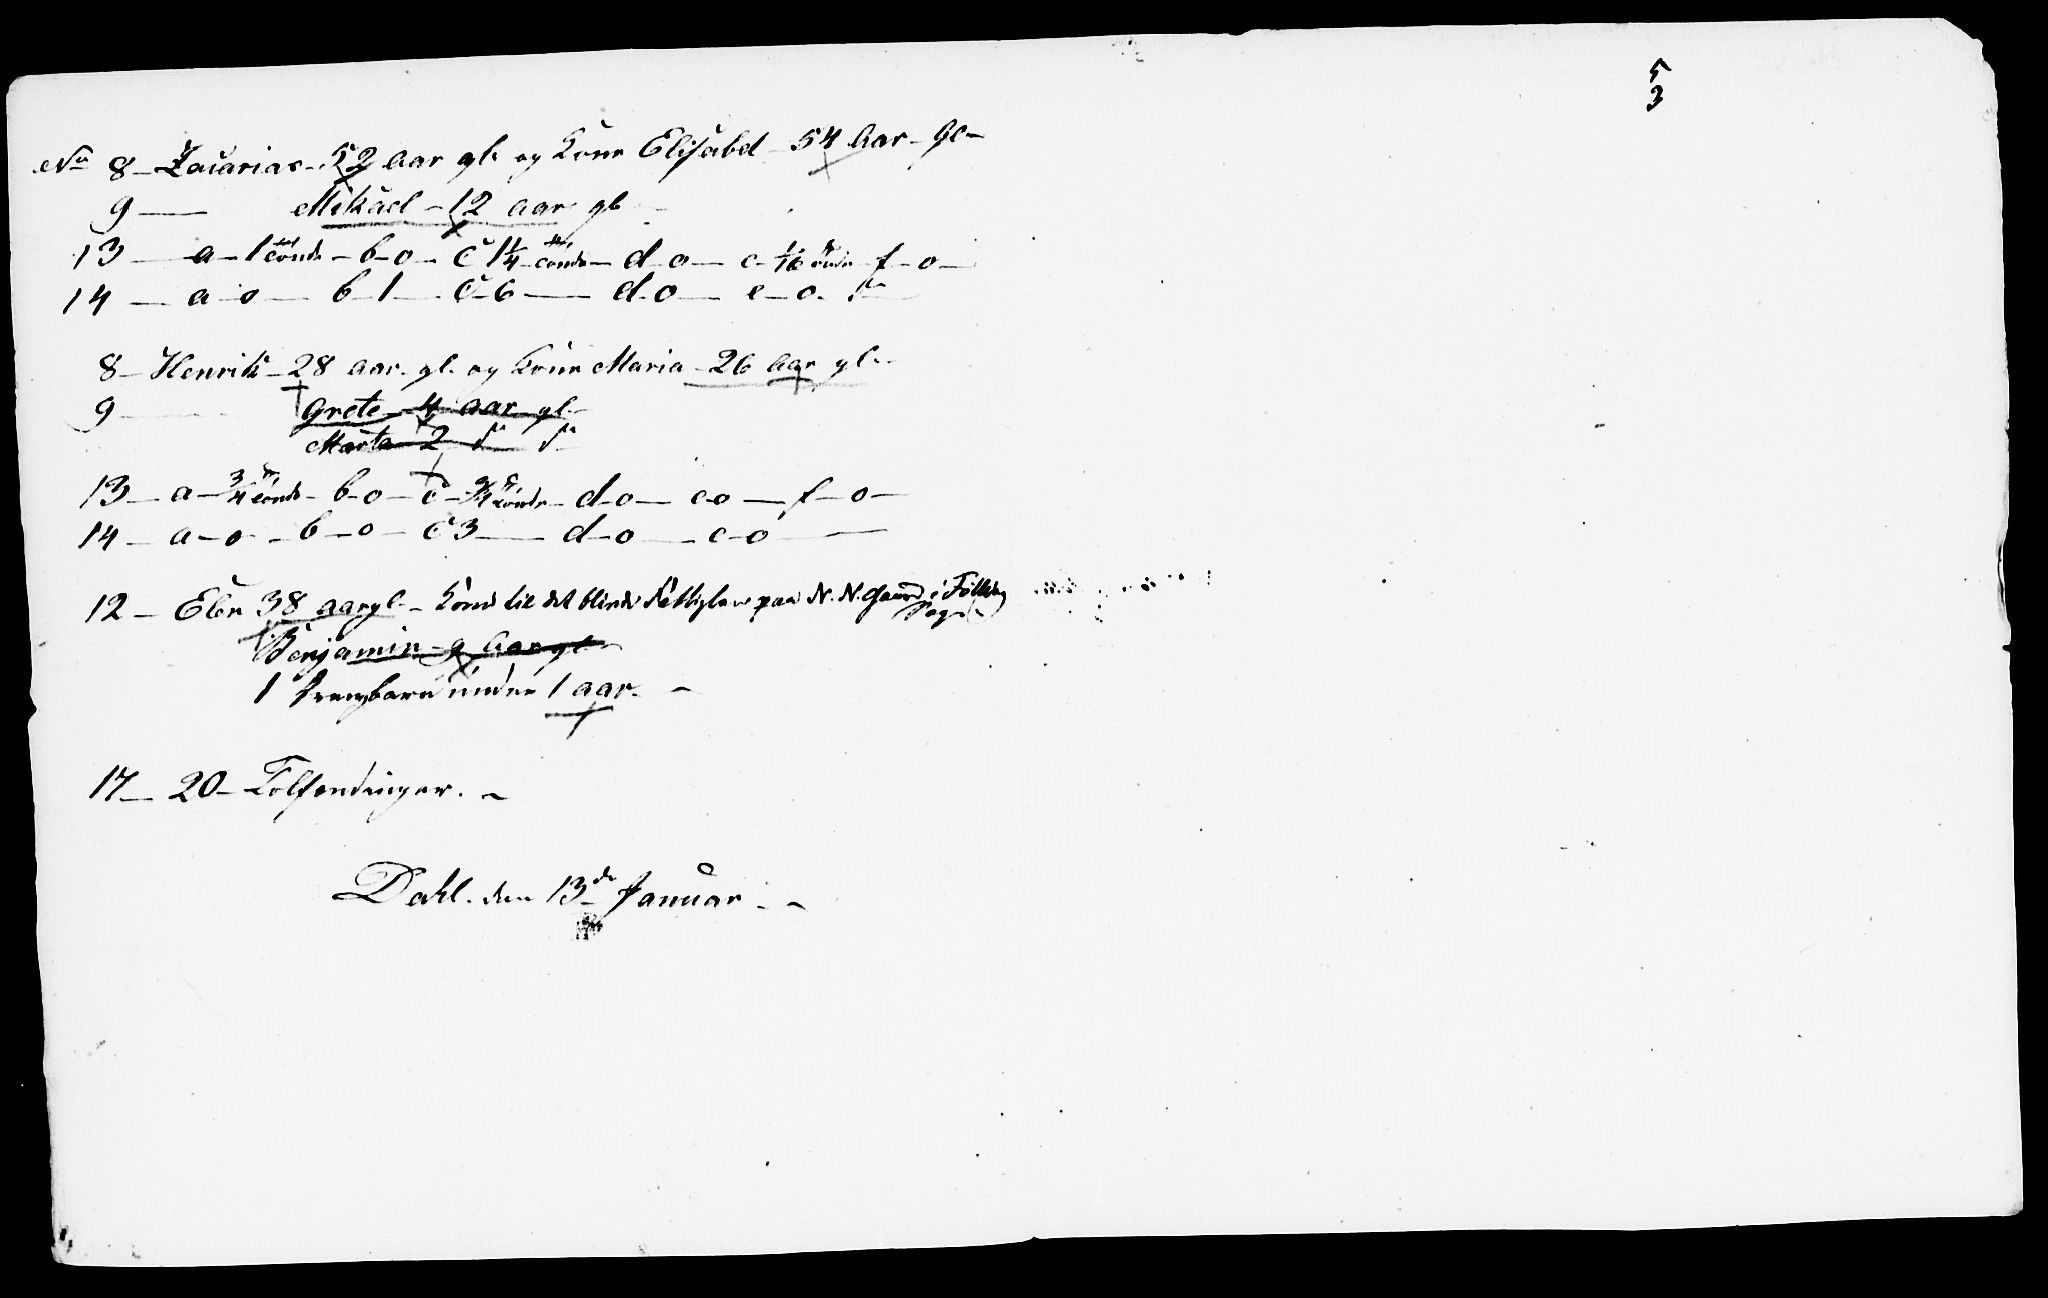 5
3
No 8 - Zacarias - 52 Aar gl. og Kone Elisabet 54 Aar - gl -
9 — Mikael - 12 aar gl
13 — a - 1 tönde - b - o - c 1 1/4 tönde - d - o - e - 1/16 tönde f - o -
14 — a - o — b - 1 — c - 6 — d - o — e - o. f —
8 - Henrik - 28 aar. gl. og Kone Maria - 26 Aar gl. -
9 — Grete - 4 aar gl.
Marta 2 d° d°
13 - a - 3/4 tönde - b - o - c - 3/4 tönde - d - o - e - o - f - o -
14 - a - o - b - o - c 3 — d - o - e - o —
12 - Eber 38 aar gl. - Kone til det blinde Fattiglem paa N. N. Gaard i
Sogn
Benjamin - 9 Aar gl
1 Drengbarn under 1 aar. -
17 - 20 - Tolfenduger. -
Dahl. den 13de Januar - -